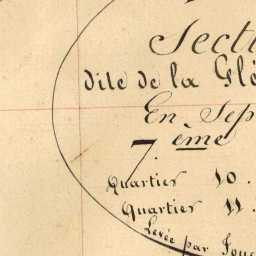 Secti
dite de la Glé
En Sep
7 ème
Quartier 10.
Quartier 11.
Levée par Fouc